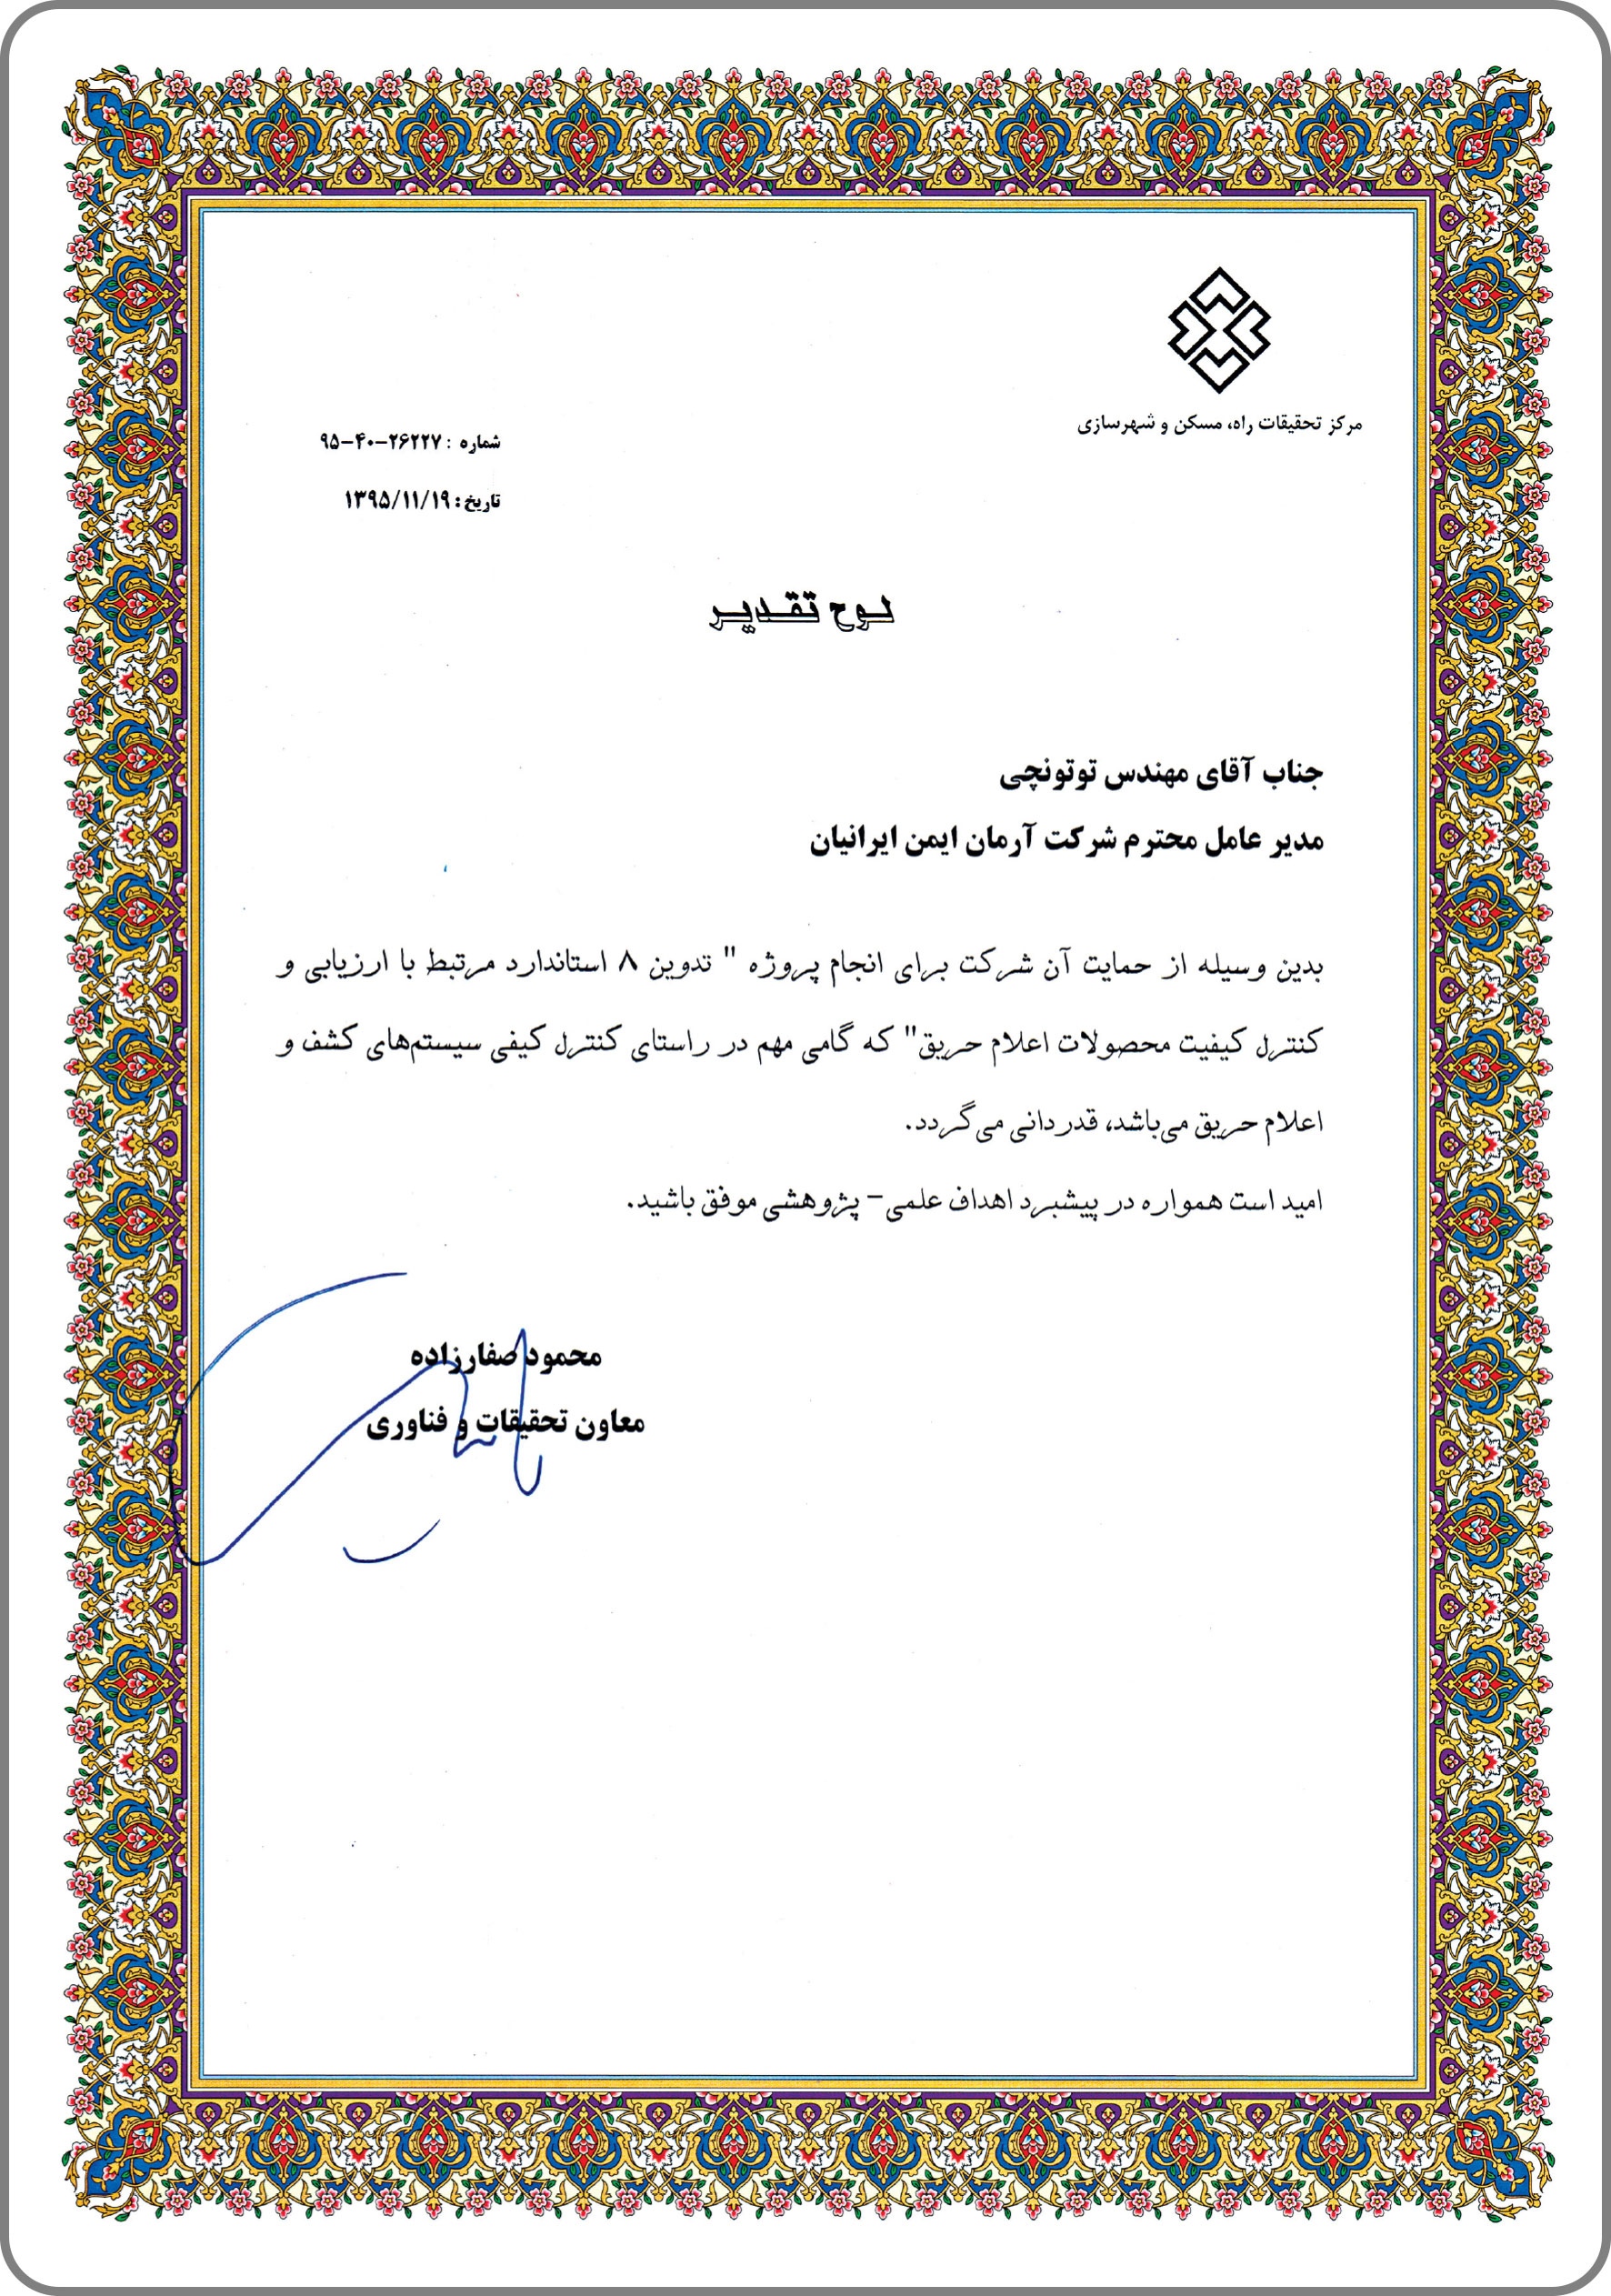 مرکز تحقیقات راه، مسکن و شهرسازی
شماره : ۲۶۲۲۷-۴۰-۹۵
تاریخ : ۱۳۹۵/۱۱/۱۹
لوح تقدیر
جناب آقای مهندس توتونچی
مدیر عامل محترم شرکت آرمان ایمن ایرانیان
بدین وسیله از حمایت آن شرکت برای انجام پروژه " تدوین ۸ استاندارد مرتبط با ارزیابی و
کنترل کیفیت محصولات اعلام حریق" که گامی مهم در راستای کنترل کیفی سیستم‌های کشف و
اعلام حریق می‌باشد، قدردانی می‌گردد.
امید است همواره در پیشبرد اهداف علمی- پژوهشی موفق باشید.
محمود صفارزاده
معاون تحقیقات و فناوری